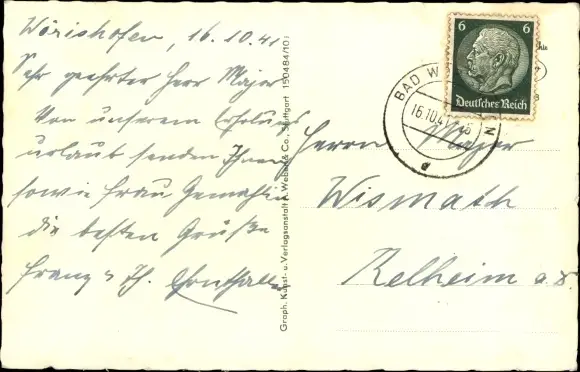 Wörishofen, 16.10.41
Sehr geehrter Herr Major
Von unserem Erholungs
urlaub senden Ihnen
sowie Frau Gemahlin
die besten Grüße
Franz u. Th.
Graph. Kunst- u. Verlagsanstalt A. Weber & Co., Stuttgart 150484/10
6 6
Deutsches Reich
BAD W N
16.10.41
d
Herrn Major
Wismath
Kelheim a.D.